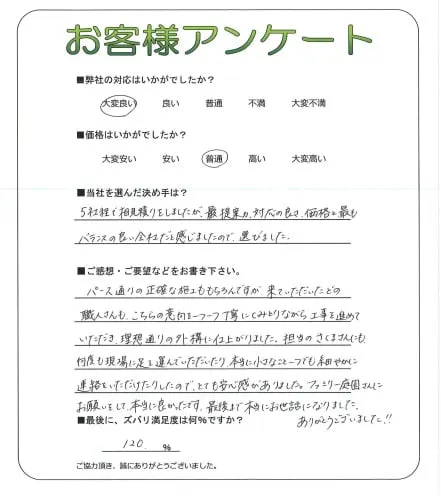 お客様アンケート
■弊社の対応はいかがでしたか？
大変良い 良い 普通 不満 大変不満
■価格はいかがでしたか？
大変安い 安い 普通 高い 大変高い
■当社を選んだ決め手は？
5社程で相見積りをしましたが、最提案力、対応の良さ、価格と最も
バランスの良い会社だと感じましたので、選びました。
■ご感想・ご要望などをお書き下さい。
パース通りの正確な施工ももちろんですが、来ていただいたどの
職人さんも、こちらの意向を一つ一つ丁寧にくみとりながら工事を進めて
いただき、理想通りの外構に仕上がりました。担当のさくまさんにも
何度も現場に足を運んでいただいたり、本当に小さなこと一つでも細やかに
連絡をいただけたりしたので、とても安心感がありました。ファミリー庭園さんに
お願いをして、本当に良かったです。最後まで本当にお世話になりました。
ありがとうございました!!
■最後に、ズバリ満足度は何％ですか？
120. ％
ご協力頂き、誠にありがとうございました。